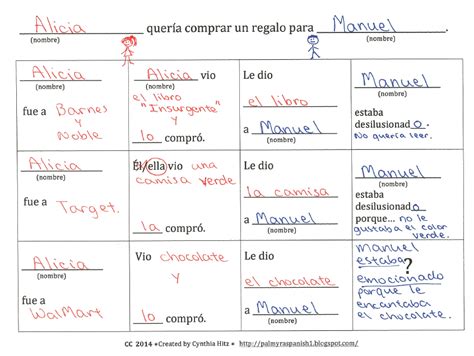 Alicia quería comprar un regalo para Manuel.
(nombre) (nombre)
Alicia
(nombre)
fue a Barnes
y
Noble
Alicia vio
(nombre)
el libro
"Insurgente"
y
lo compró.
Le dio
el libro
a Manuel.
(nombre)
Manuel
(nombre)
estaba
desilusionado.
No quería leer.
Alicia
(nombre)
fue a
Target.
Él/ella vio una
camisa verde
y
la compró.
Le dio
la camisa
a Manuel.
(nombre)
Manuel
(nombre)
estaba
desilusionado
porque... no le
gustaba el color
verde.
Alicia
(nombre)
fue a
WalMart
Vio chocolate
y
lo compró.
Le dio
el chocolate
a Manuel.
(nombre)
Manuel
estaba ?
emocionado
porque le
encantaba
el chocolate.
CC 2014 •Created by Cynthia Hitz • http://palmyraspanish1.blogspot.com/